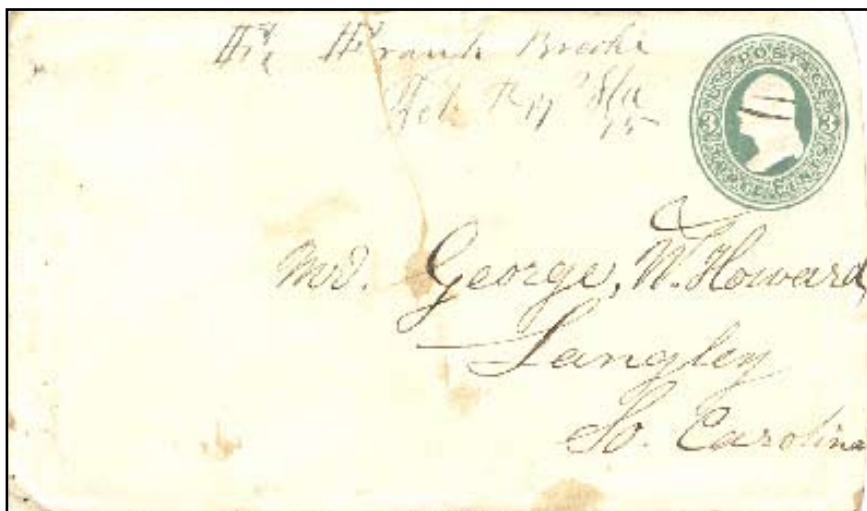 Branch
Feb 17
75
U.S. POSTAGE
3 3
THREE CENTS
Mr. George, W. Howard
Langley
So. Carolina